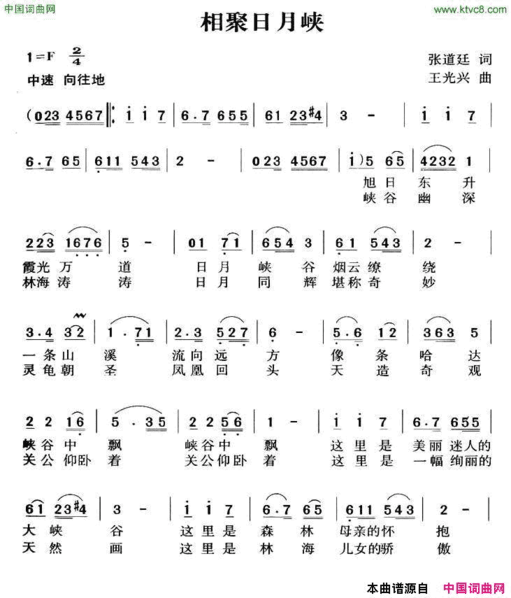 中国词曲网
www.ktvc8.com
相聚日月峡
1=F 2/4
中速 向往地
张道廷 词
王光兴 曲
(023 4567 ‖: i i 7 | 6·7 65 | 61 23#4 | 3 - | i i 7 |
6·7 65 | 611 543 | 2 - | 023 4567 | i) 5 65 | 4232 1 |
旭日东升
峡谷幽深
223 1676 | 5 - | 01 71 | 654 3 | 61 543 | 2 - |
霞光万道 日月峡谷烟云缭绕
林海涛涛 日月同辉堪称奇妙
3·4 32 | 1· 71 | 2·3 527 | 6 - | 5·6 12 | 363 5 |
一条山溪 流向远方 像条哈达
灵龟朝圣 凤凰回头 天造奇观
2 2 16 | 5· 35 | 2 2 56 | 1 - | i i 7 | 6·7 655 |
峡谷中飘 峡谷中飘 这里是美丽迷人的
关公仰卧着 关公仰卧着 这里是一幅绚丽的
61 23#4 | 3 - | i i 7 | 6·7 65 | 611 543 | 2 - |
大峡谷 这里是森林母亲的怀抱
天然画 这里是林海儿女的骄傲
本曲谱源自 中国词曲网